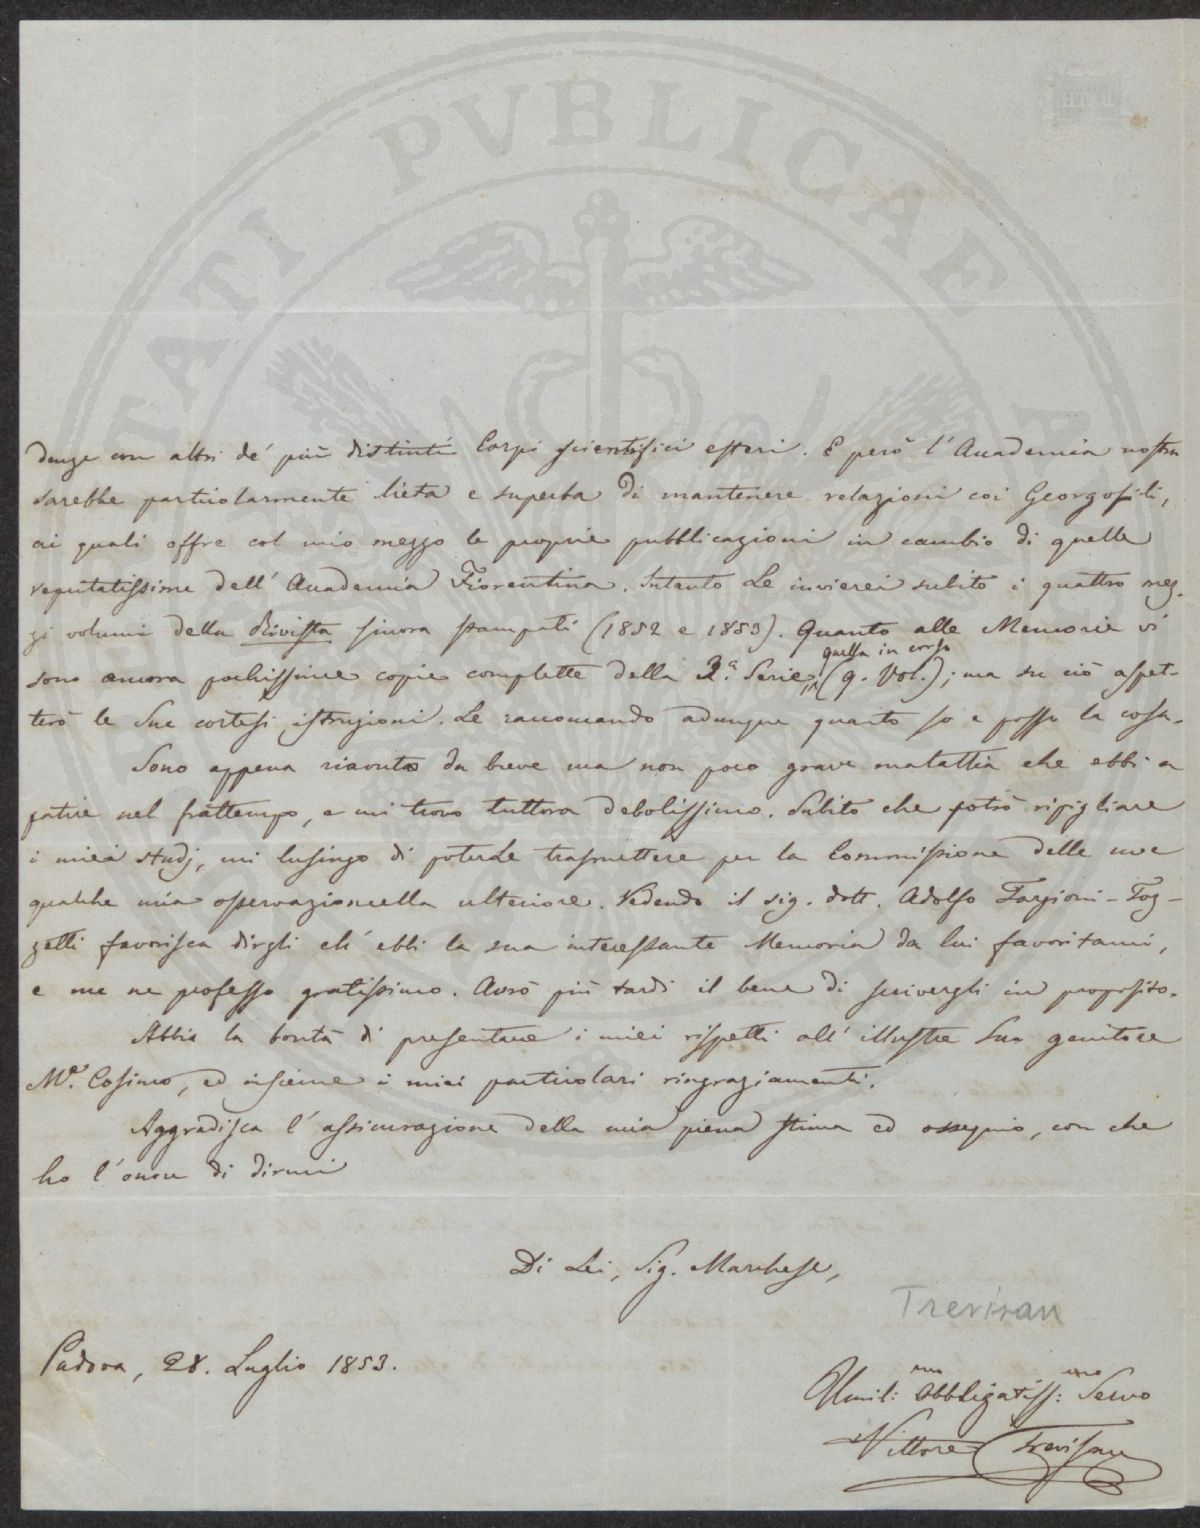 PVBLICAE
denze con altri de' più distinti Corpi scientifici esteri. E però l'Accademia nostra
sarebbe particolarmente lieta e superba di mantenere relazioni coi Georgofili,
ai quali offre col mio mezzo le proprie pubblicazioni in cambio di quelle
reputatissime dell'Accademia Fiorentina. Intanto Le invierei subito i quattro mez-
zi volumi della Rivista finora stampati (1852 e 1853). Quanto alle Memorie vi
quella in corso
sono ancora pochissime copie complette della 2.a Serie, (9. Vol.); ma su ciò aspet-
terò le Sue cortesi istruzioni. Le raccomando adunque quanto so e posso la cosa.
Sono appena riavuto da breve ma non poco grave malattia che ebbi a
patire nel frattempo, e mi trovo tuttora debolissimo. Subito che potrò ripigliare
i miei studj, mi lusingo di poterLe trasmettere per la Commissione delle uve
qualche mia osservazioncella ulteriore. Vedendo il sig. dott. Adolfo Targioni-Toz-
zetti favorisca dirgli ch'ebbi la sua interessante Memoria da lui favoritami,
e me ne professo gratissimo. Avrò più tardi il bene di scrivergli in proposito.
Abbia la bontà di presentare i miei rispetti all'illustre Suo genitore
M.e Cosimo, ed insieme i miei particolari ringraziamenti.
Aggradisca l'assicurazione della mia piena stima ed ossequio, con che
ho l'onore di dirmi
Di Lei, Sig. Marchese,
Trevisan
Padova, 28. Luglio 1853.
Umil:mo Obbligatiss:mo Servo
Vittore Trevisan